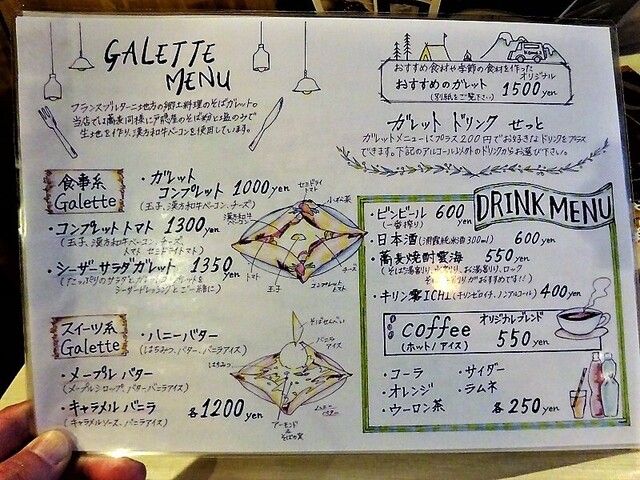 GALETTE
MENU
フランスブルターニュ地方の郷土料理のそばガレット。
当店では蕎麦同様に戸隠産のそば粉と塩のみで
生地を作り、漢方和牛ベーコンを使用しています。
おすすめ食材や季節の食材を使った
オリジナル
おすすめのガレット
(別紙をご覧下さい)
1500yen
ガレット ドリンク せっと
ガレットメニューにプラス200円でお好きなドリンクをプラス
できます。下記のアルコール以外のドリンクからお選び下さい。
食事系
Galette
・ガレット
コンプレット 1000yen
(玉子、漢方和牛ベーコン、チーズ)
・コンプレットトマト 1300yen
(玉子、漢方和牛ベーコン、チーズ
トマト セミドライトマト)
・シーザーサラダガレット 1350yen
シーザードレッシングとご一緒に)
セミドライ
トマト
漢方和牛
ベーコン
トマト
玉子
コンプレット
トマト
チーズ
スイーツ系
Galette
・ハニーバター
(はちみつ、バター、バニラアイス)
・メープルバター
(メープルシロップ、バター、バニラアイス)
・キャラメルバニラ
(キャラメルソース、バニラアイス)
各1200yen
そばせんべい
バニラ
アイス
はちみつ
ハニー
バター
アーモンド
&
そばの実
DRINK MENU
・ビンビール 600yen
(一番搾り)
・日本酒 600yen
・蕎麦焼酎雲海 550yen
・キリン零ICHI(キリンゼロイチ、ノンアルコール) 400yen
coffee
(ホット/アイス)
オリジナルブレンド
550yen
・コーラ
・サイダー
・オレンジ
・ラムネ
・ウーロン茶
各250yen